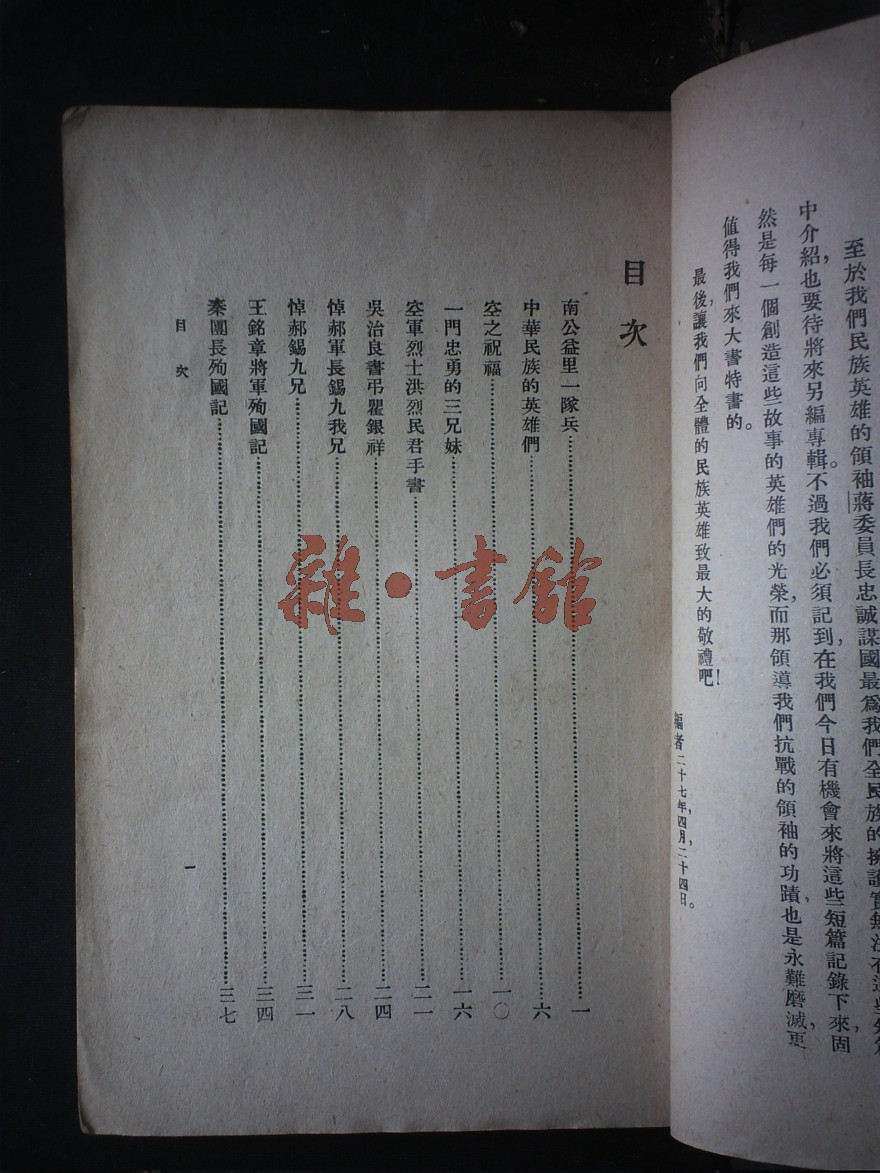 至於我們民族英雄的領袖蔣委員長忠誠謀國最爲我們全民族的擁護實無
中介紹，也要待將來另編專輯。不過我們必須記到，在我們今日有機會來將這些短篇記錄下來，固
然是每一個創造這些故事的英雄們的光榮，而那領導我們抗戰的領袖的功蹟，也是永難磨滅，更
値得我們來大書特書的。
最後，讓我們向全體的民族英雄致最大的敬禮吧！
編者二十七年，四月，二十四日。
目次
南公益里一隊兵……一
中華民族的英雄們……六
空之祝福……一〇
一門忠勇的三兄妹……一六
空軍烈士洪烈民君手書……二一
吳治良書弔瞿銀祥……二四
悼郝軍長錫九我兄……二八
悼郝錫九兄……三一
王銘章將軍殉國記……三四
秦團長殉國記……三七
目次
一
雜·書館